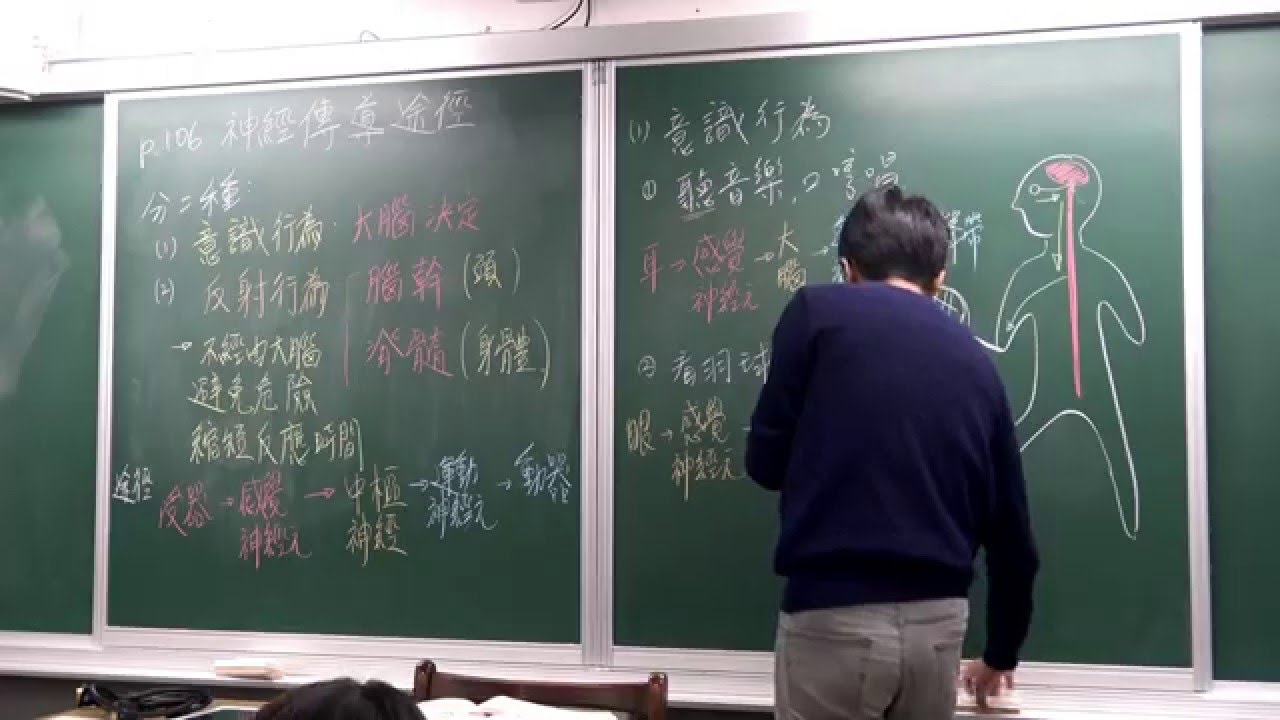 p.106 神經傳導途徑
分二種:
(1) 意識行為: 大腦決定
(2) 反射行為 腦幹(頭)
脊髓(身體)
→不經由大腦
避免危險
縮短反應時間
途徑 受器→感覺神經元→中樞神經→運動神經元→動器
(1) 意識行為
① 聽音樂,口哼唱
耳→感覺神經元→大腦→
帶
② 看羽球
眼→感覺神經元